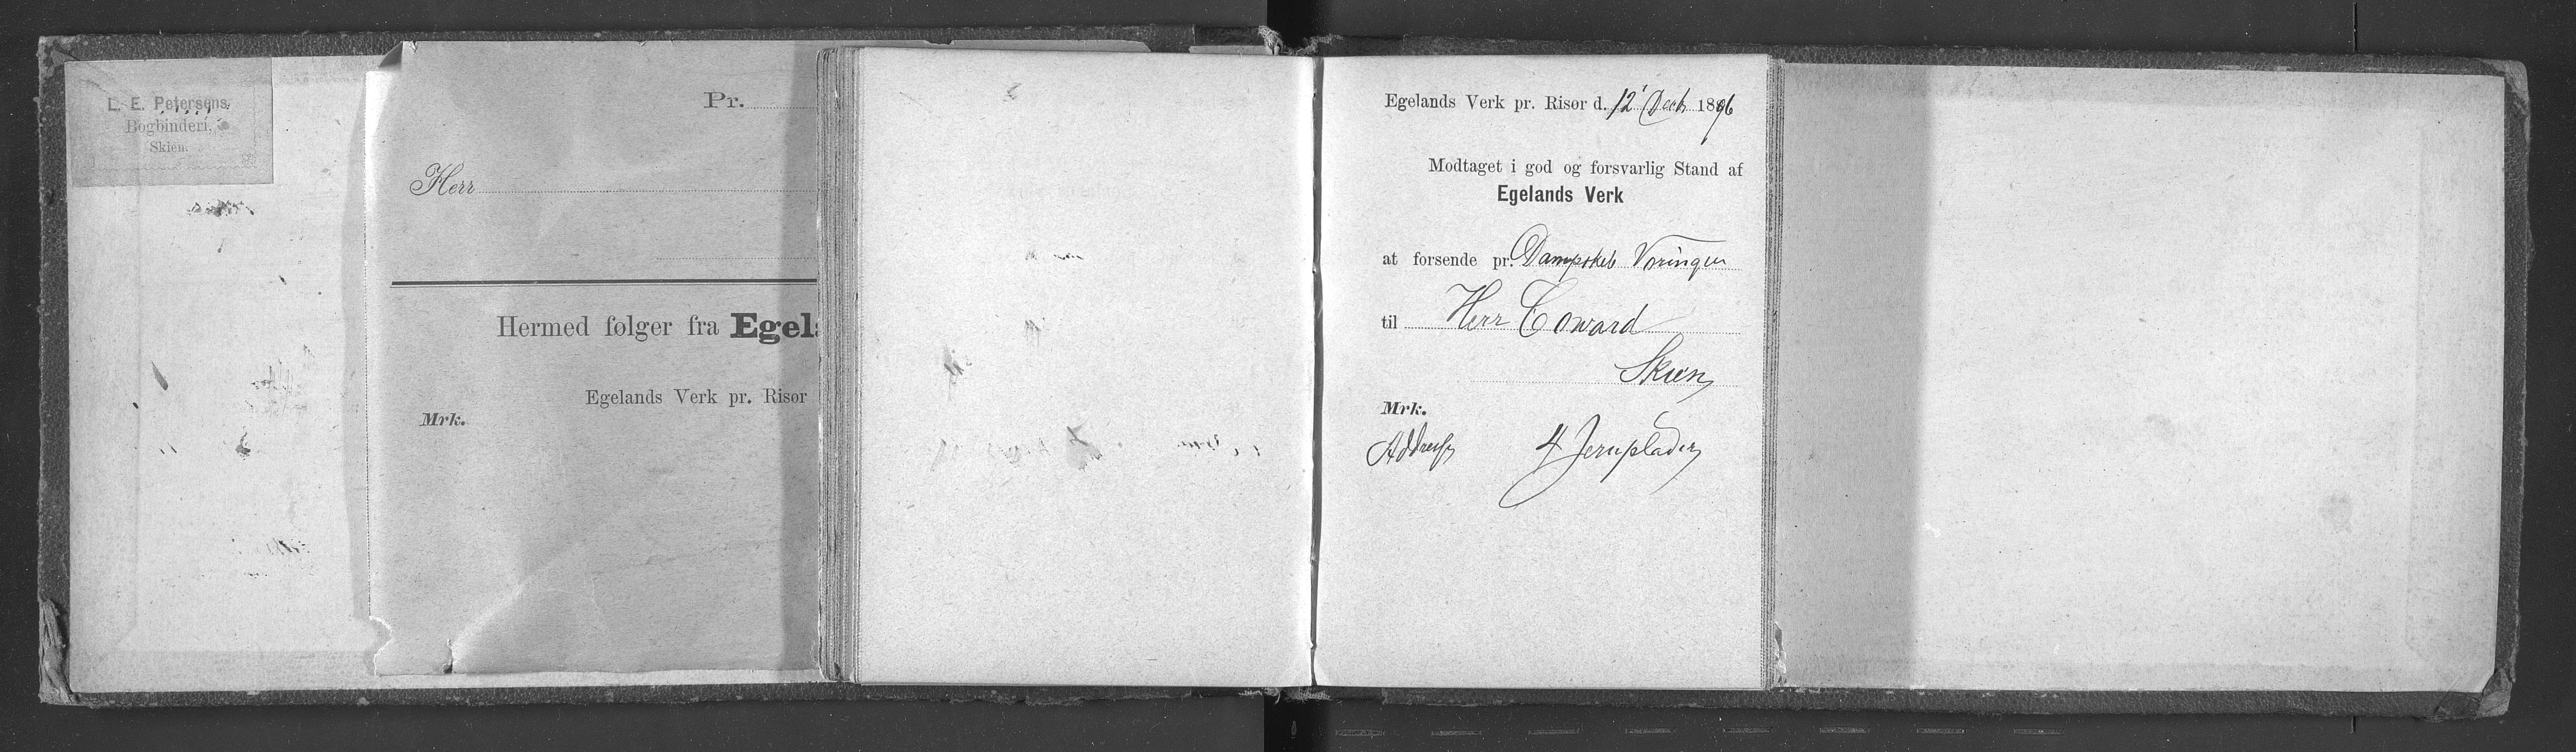 L. E. Petersens
Bogbinderi,
Skien.
Pr.
Herr
Hermed følger fra Egel
Egelands Verk pr. Risør
Mrk.
Egelands Verk pr. Risør d. 12' Decb 1896
Modtaget i god og forsvarlig Stand af
Egelands Verk
at forsende pr. Dampskib Vøringen
til Herr Coward
Skien
Mrk.
Addresse 4 Jernplader